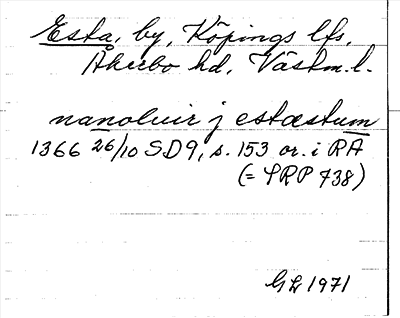 Esta, by, Köpings lfs,
Åkerbo hd, Västm.l.
nanoluir j estæstum
1366 26/10 SD9, s. 153 or. i RA
(= SRP 738)
GL 1971